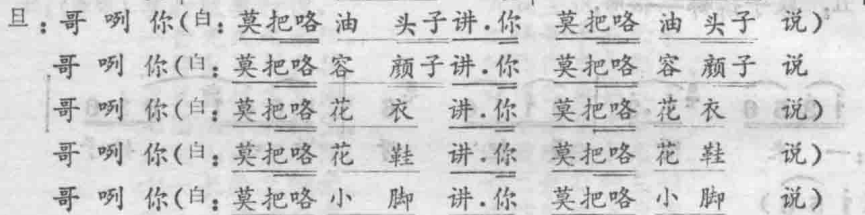 旦：哥咧你（白：莫把咯油头子讲.你莫把咯油头子说）
哥咧你（白：莫把咯容颜子讲.你莫把咯容颜子说
哥咧你（白：莫把咯花衣讲.你莫把咯花衣说）
哥咧你（白：莫把咯花鞋讲.你莫把咯花鞋说）
哥咧你（白：莫把咯小脚讲.你莫把咯小脚说）